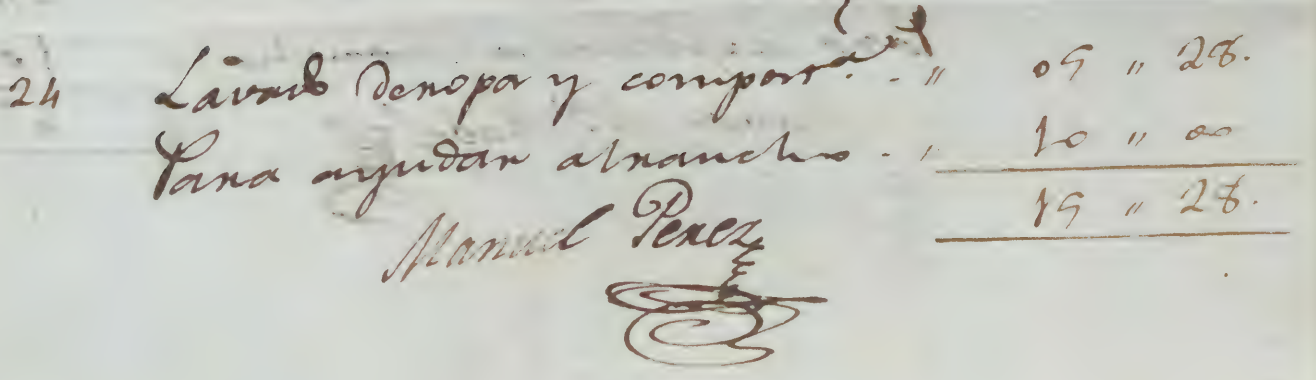 24 Lavado de ropa y compost.a . . " 05 " 28.
Para ayudar al rancho . " 10 " 00
15 " 28.
Manuel Perez